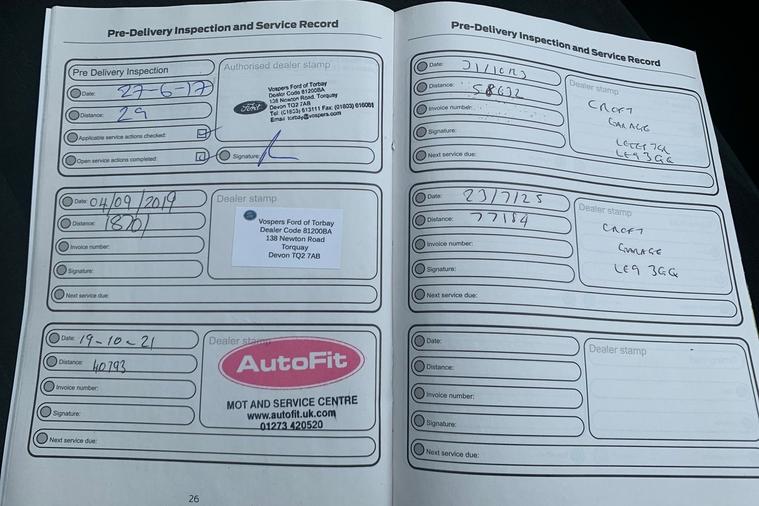 Pre-Delivery Inspection and Service Record
Pre Delivery Inspection
Date: 27-6-17
Distance: 29
Applicable service actions checked:
Open service actions completed:
Authorised dealer stamp
Ford
Vospers Ford of Torbay
Dealer Code 81200BA
138 Newton Road, Torquay
Devon TQ2 7AB
Tel: (01803) 613111 Fax: (01803) 616081
Email torbay@vospers.com
Signature:
Date: 04/09/2019
Distance: 18701
Invoice number:
Signature:
Next service due:
Dealer stamp
Vospers Ford of Torbay
Dealer Code 81200BA
138 Newton Road
Torquay
Devon TQ2 7AB
Date: 19-10-21
Distance: 40793
Invoice number:
Signature:
Next service due:
Dealer stamp
AutoFit
MOT AND SERVICE CENTRE
www.autofit.uk.com
01273 420520
26
Pre-Delivery Inspection and Service Record
Date:
Distance: 58632
Invoice number:
Signature:
Next service due:
Dealer stamp
CROFT
GARAGE
LE9 3GQ
Date: 23/7/25
Distance: 77184
Invoice number:
Signature:
Next service due:
Dealer stamp
CROFT
GARAGE
LE9 3GQ
Date:
Distance:
Invoice number:
Signature:
Next service due:
Dealer stamp